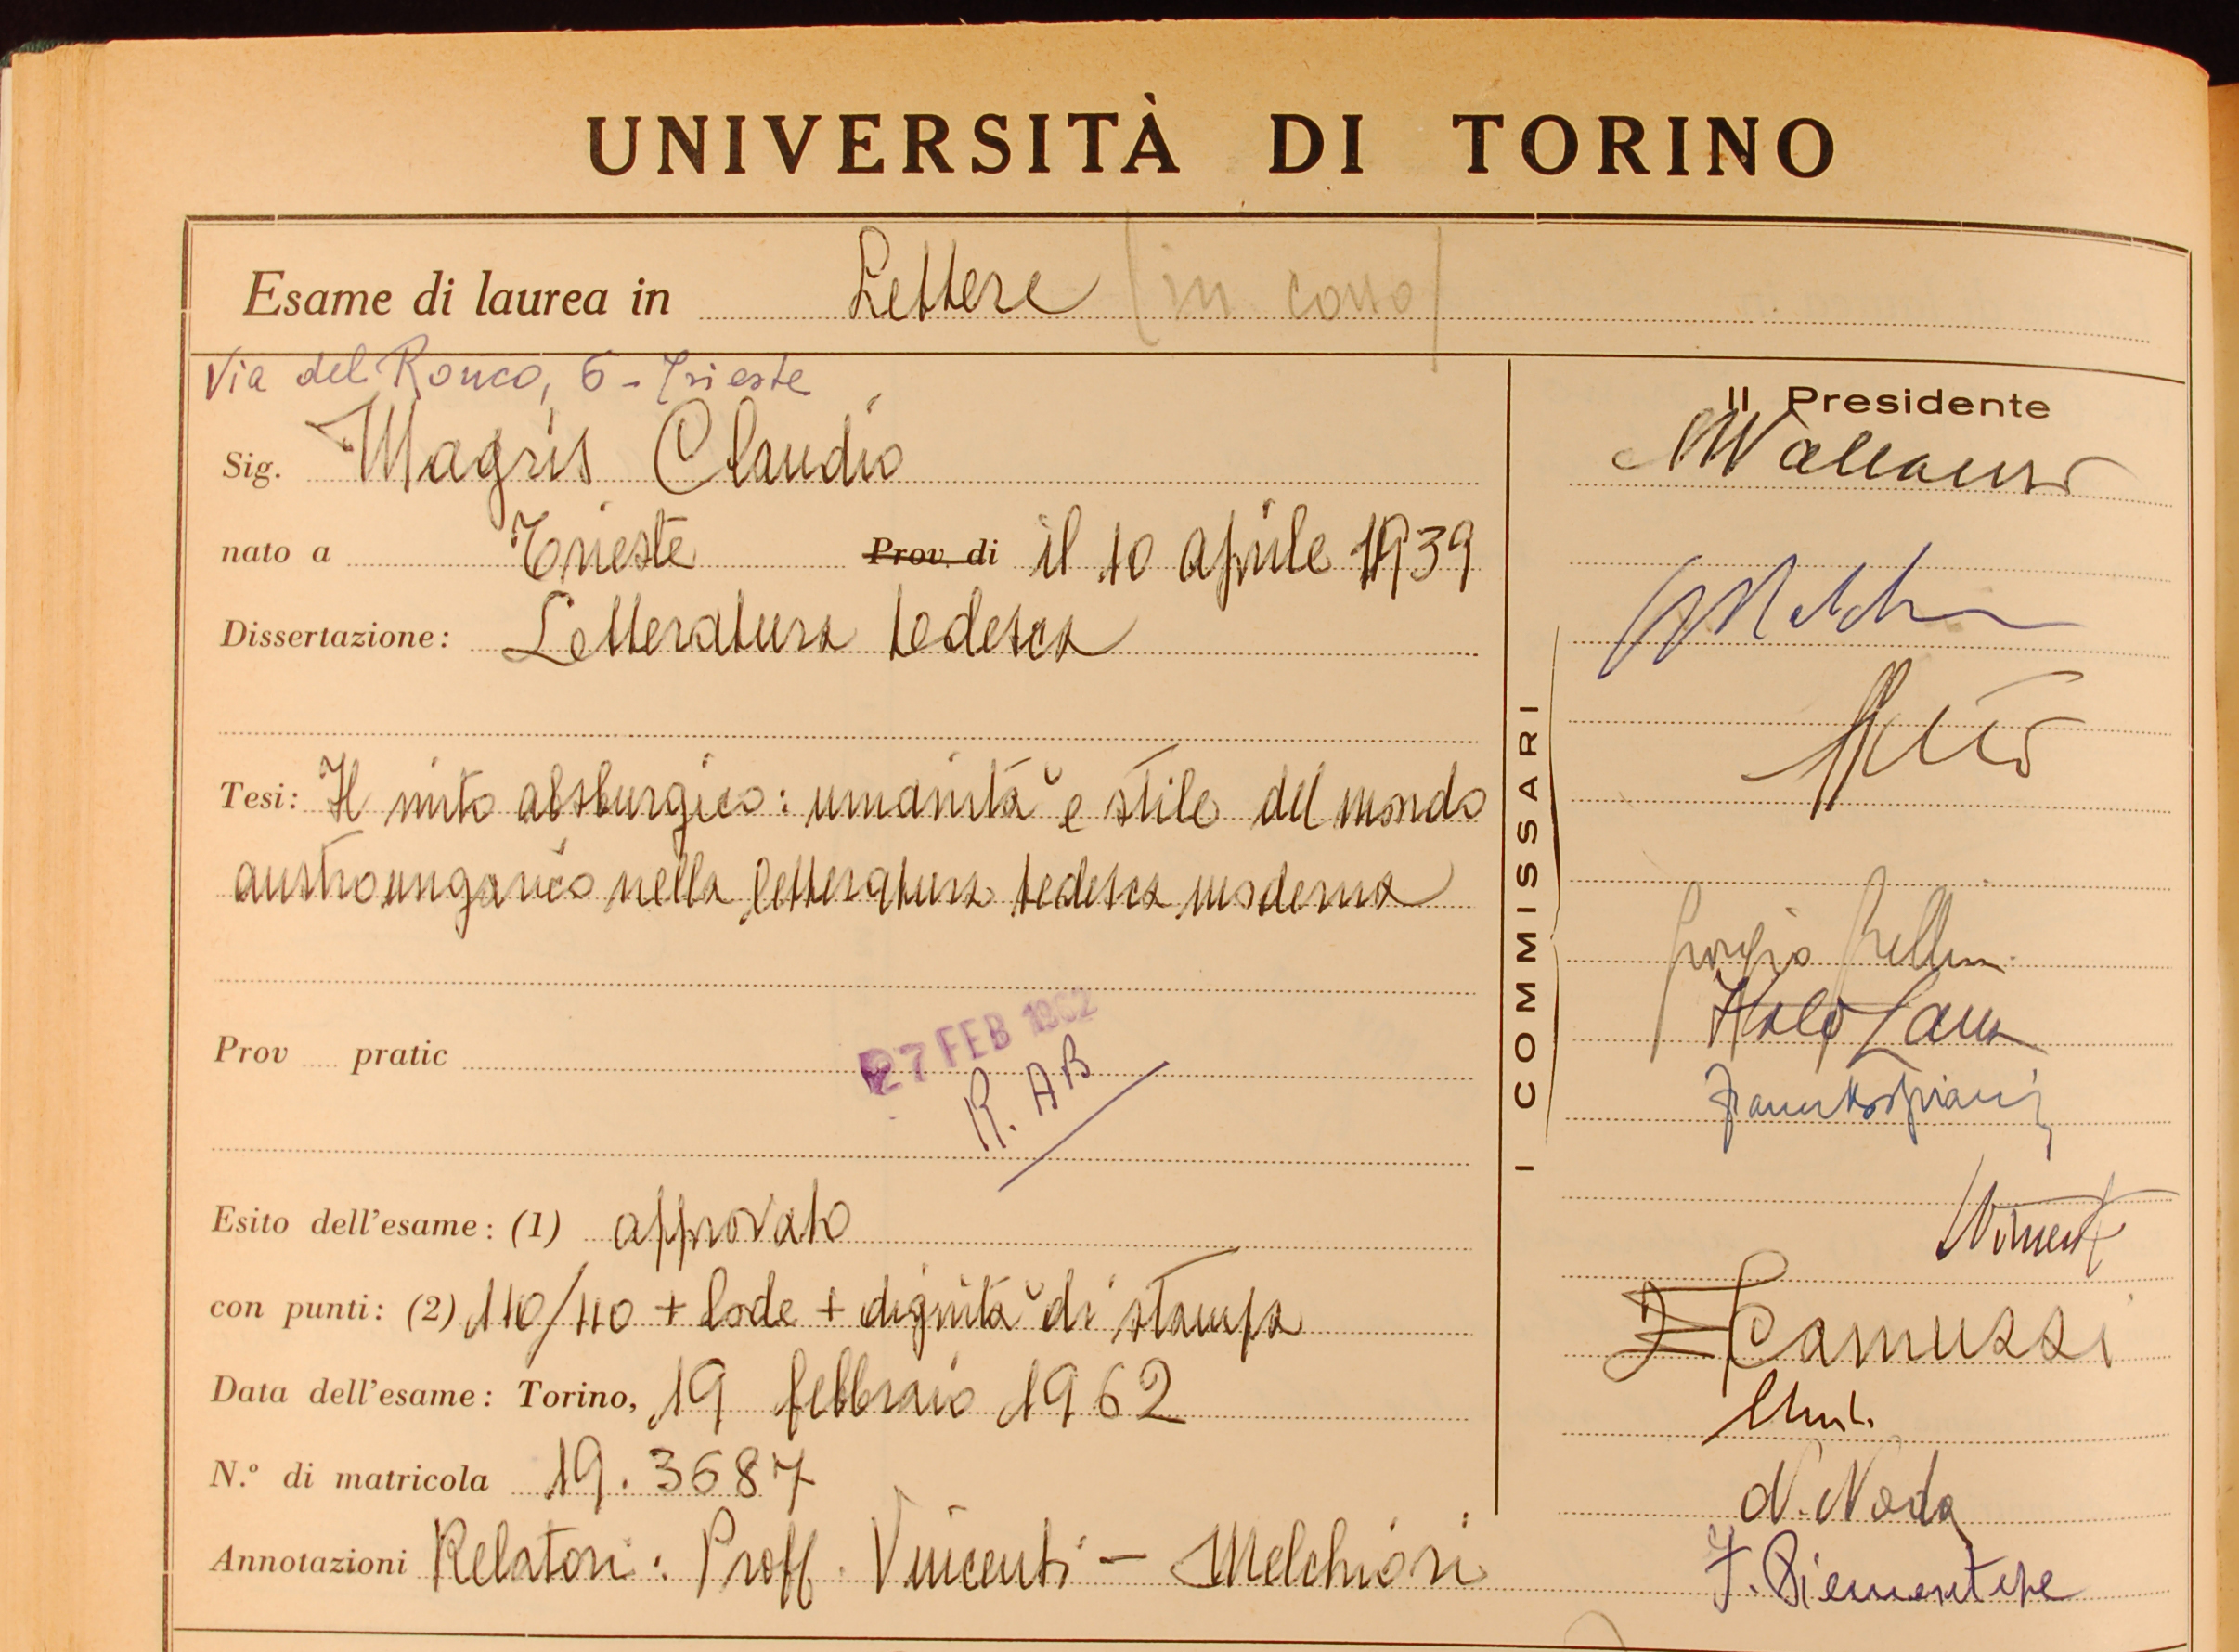 UNIVERSITÀ DI TORINO
Esame di laurea in Lettere (in corso)
Via del Ronco, 6 - Trieste
Sig. Magris Claudio
nato a Trieste Prov. di il 10 aprile 1939
Dissertazione: Letteratura tedesca
Tesi: Il mito absburgico: umanità e stile del mondo
austroungarico nella letteratura tedesca moderna
Prov pratic
27 FEB 1962
R. AB
Esito dell'esame: (1) approvato
con punti: (2) 110/110 + lode + dignità di stampa
Data dell'esame: Torino, 19 febbraio 1962
N.º di matricola 19.3687
Annotazioni Relatori: Proff. Vincenti - Melchiori
Il Presidente
I COMMISSARI
Italo Lana
Camuzzi
N. Nada
F. Piemontese